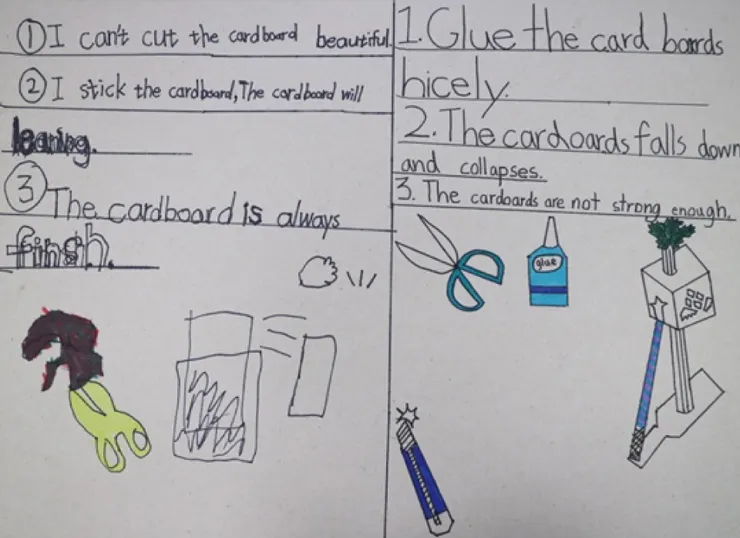 ① I can't cut the cardboard beautiful.
② I stick the cardboard, The cardboard will
leaning.
③ The cardboard is always
finsh.
1. Glue the card boards
nicely.
2. The cardboards falls down
and collapses.
3. The cardoards are not strong enough.
glue